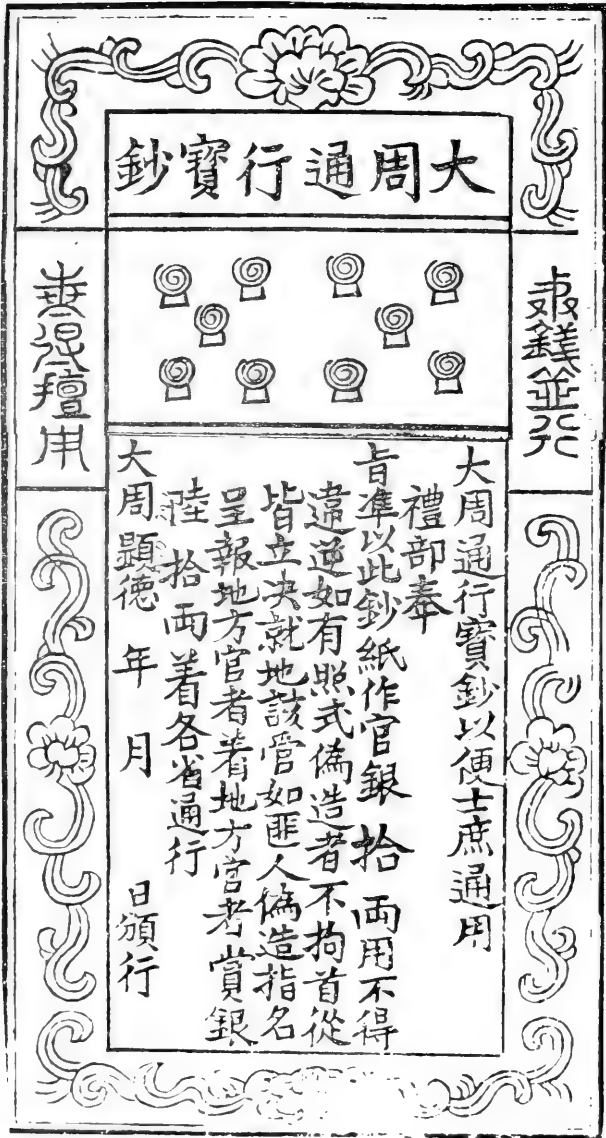 大周通行寶鈔
大周通行寶鈔以便士庶通用
禮部奉
旨準以此鈔紙作官銀拾兩用不得
違逆如有照式偽造者不拘首從
皆立决就地該管如匪人偽造指名
呈報地方官者着地方官考賞銀
陸拾兩着各省通行
大周顯德 年 月 日頒行